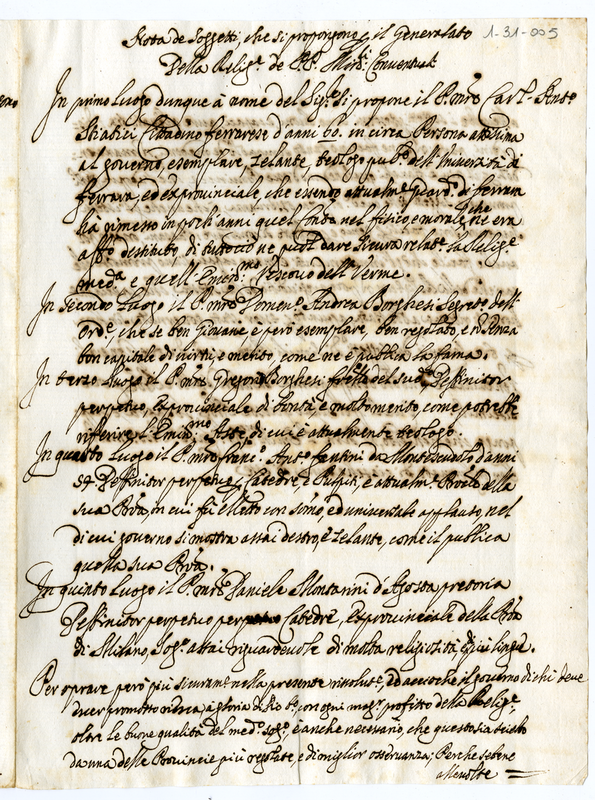 Nota de Soggetti, che si propongono p il Generalato
1-31-005
Della Relig.e de P.P. Min.i Conventuali
In primo Luogo dunque à nome del Sig.e si propone il P. mro Carl. Ant.o
Cittadino ferrarese d'anni 60. in circa Persona attissima
al governo, esemplare, zelante, teologo pub.o dell'Università di
ferrara, ed exprovinciale, che essendo attualm.e guard.o di ferrara
hà rimesso in pochi anni quel Con.to nel fisico, e morale, che ne era
aff.o destituto, di tutto ciò ne puol dare sicura relat.e la Relig.e
med.a e quell'Emin.mo Vescovo dell'Verme.
In secondo Luogo il P. mro Domen.o Andrea Borghesi Segret.o dell'
Ord.e, che se ben Giovane, è però esemplare, ben regolato, e non senza
bon capitale di virtù, e merito, come ne è publica la fama.
In terzo Luogo il P. mro Gregorio Borghesi frello del sud.o Deffinitor
perpetuo, Exprovinciale di bontà, e molto merito, come potrebbe
riferire l'Emin.mo Aste, di cui è attualmente teologo.
In quarto Luogo il P. mro Franc.o Ant.o fantini da d'anni
54. Deffinitor perpetuo, Catedre, e Pulpiti, è attualm.e Pro.le della
sua Prõa, in cui fù eletto con sõmo, ed universale applauso, nel
di cui governo si mostra assai destro, e zelante, come il publica
quella sua Prõa.
In quinto Luogo il P. mro Daniele Montanini d'Agosta pretoria
Deffinitor perpetuo Catedre, Exprovinciale della Prõa
di Milano, Sog.o assai riguardevole di molta religiosità, e più lingue.
Per oprare però più sicuram.e nella presente rissoluz.e, Ed acciochè il governo di chi deve
esser promosso riesca, à gloria di Dio b.o con ogni mag.r profitto della Relig.e
oltre le buone qualità del med.o sog.o, è anche necessario, che questo sia scielto
da una delle Provincie più regolate, e di miglior osservanza; Perche sebene
alle volte